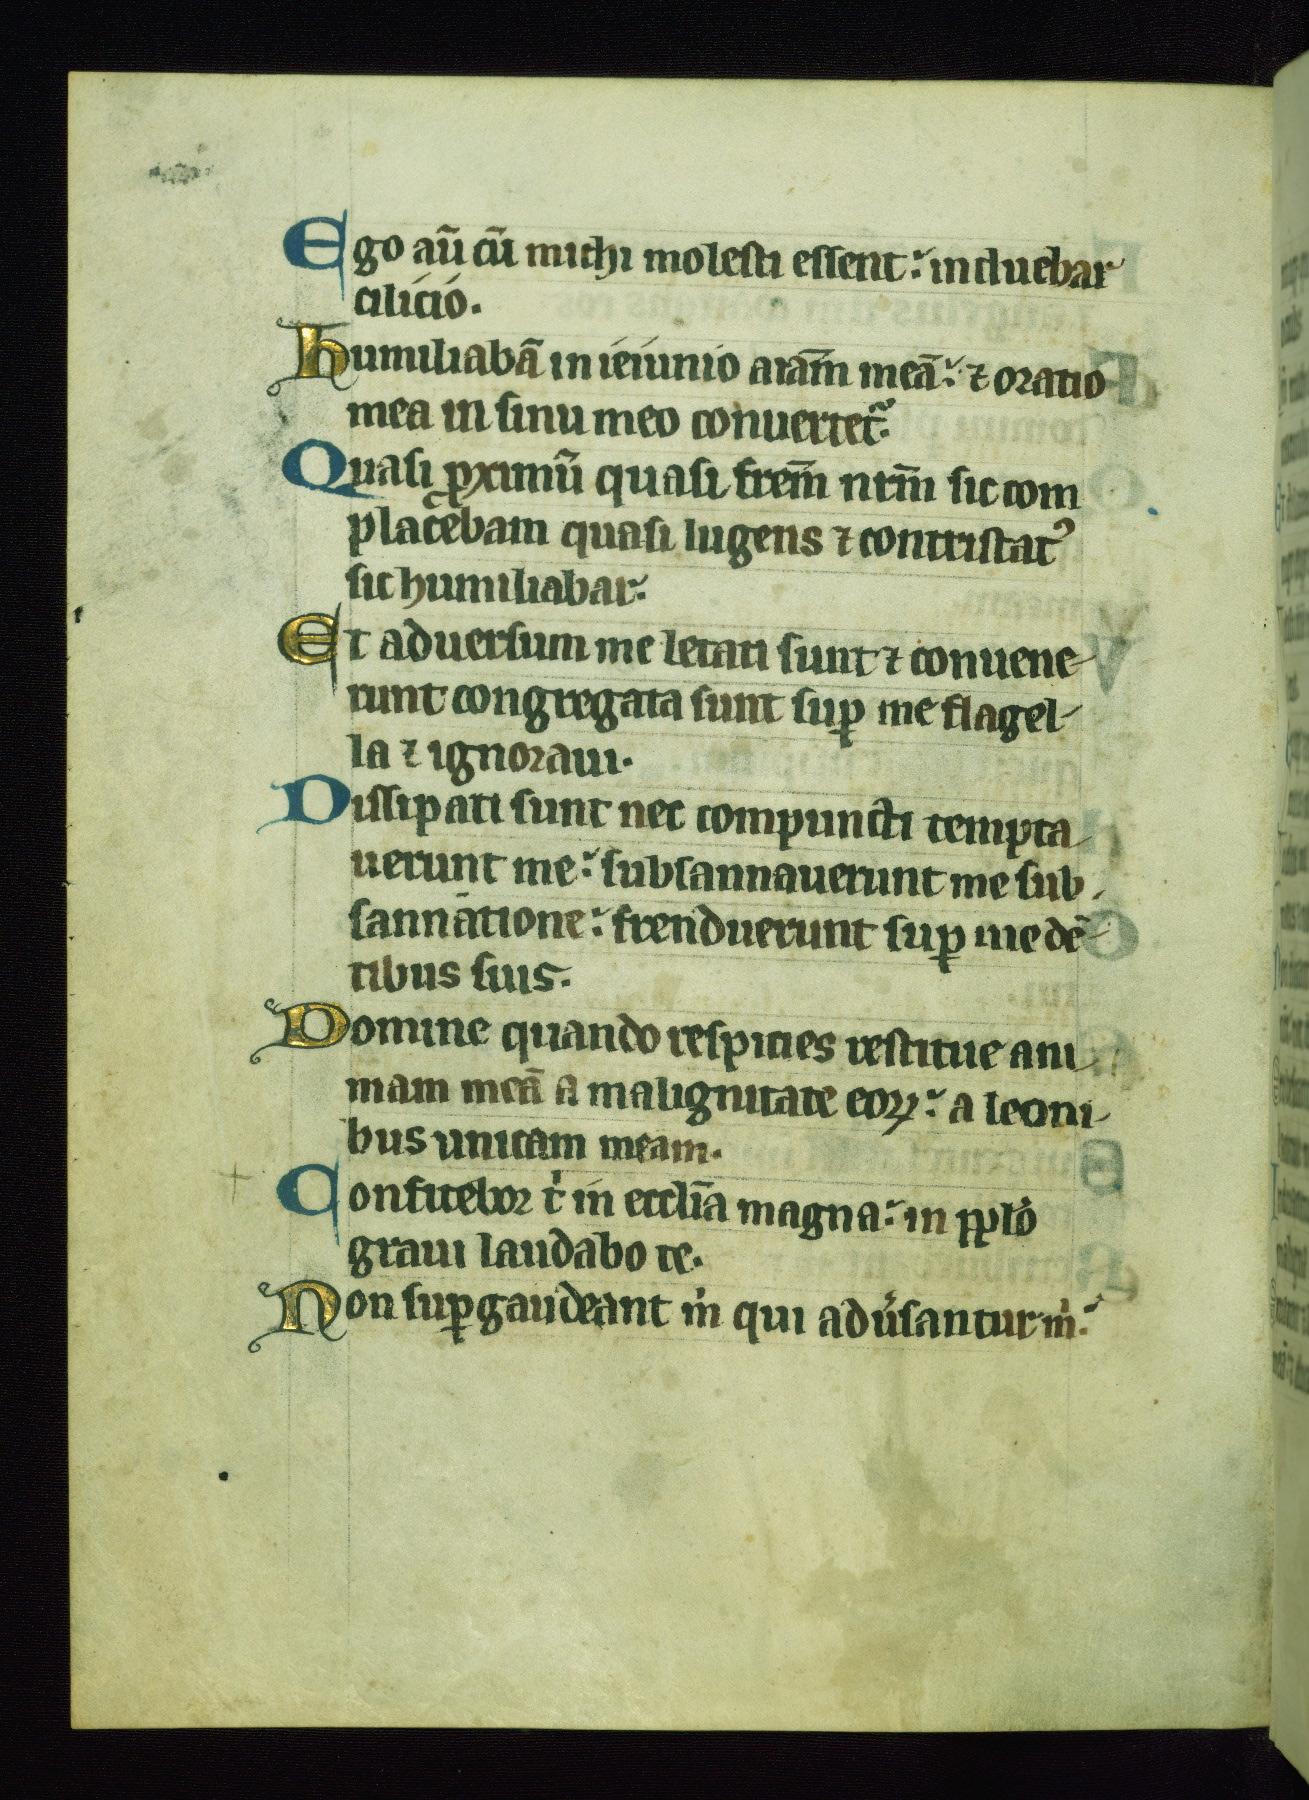 Ego aū cū michi molesti essent: induebar
cilicio.
humiliabā in ieiunio aīam meā: ⁊ oratio
mea in sinu meo conuertet᷑.
Quasi ꝓximū quasi frem̄ nrm̄ sic com
placebam quasi lugens ⁊ contristatꝰ
sic humiliabar.
Et aduersum me letati sunt ⁊ conuene-
runt congregata sunt suꝑ me flagel-
la ⁊ ignoraui.
Dissipati sunt nec compuncti tempta-
uerunt me: subsannauerunt me sub-
sannatione: frenduerunt suꝑ me dē-
tibus suis.
Domine quando respicies restitue ani-
mam meā a malignitate eoꝝ: a leoni-
bus unicam meam.
Confitebor t̉ in ecclīa magna: in ppl̉o
graui laudabo te.
Non suꝑgaudeant m̉ qui adủsantur m̉: